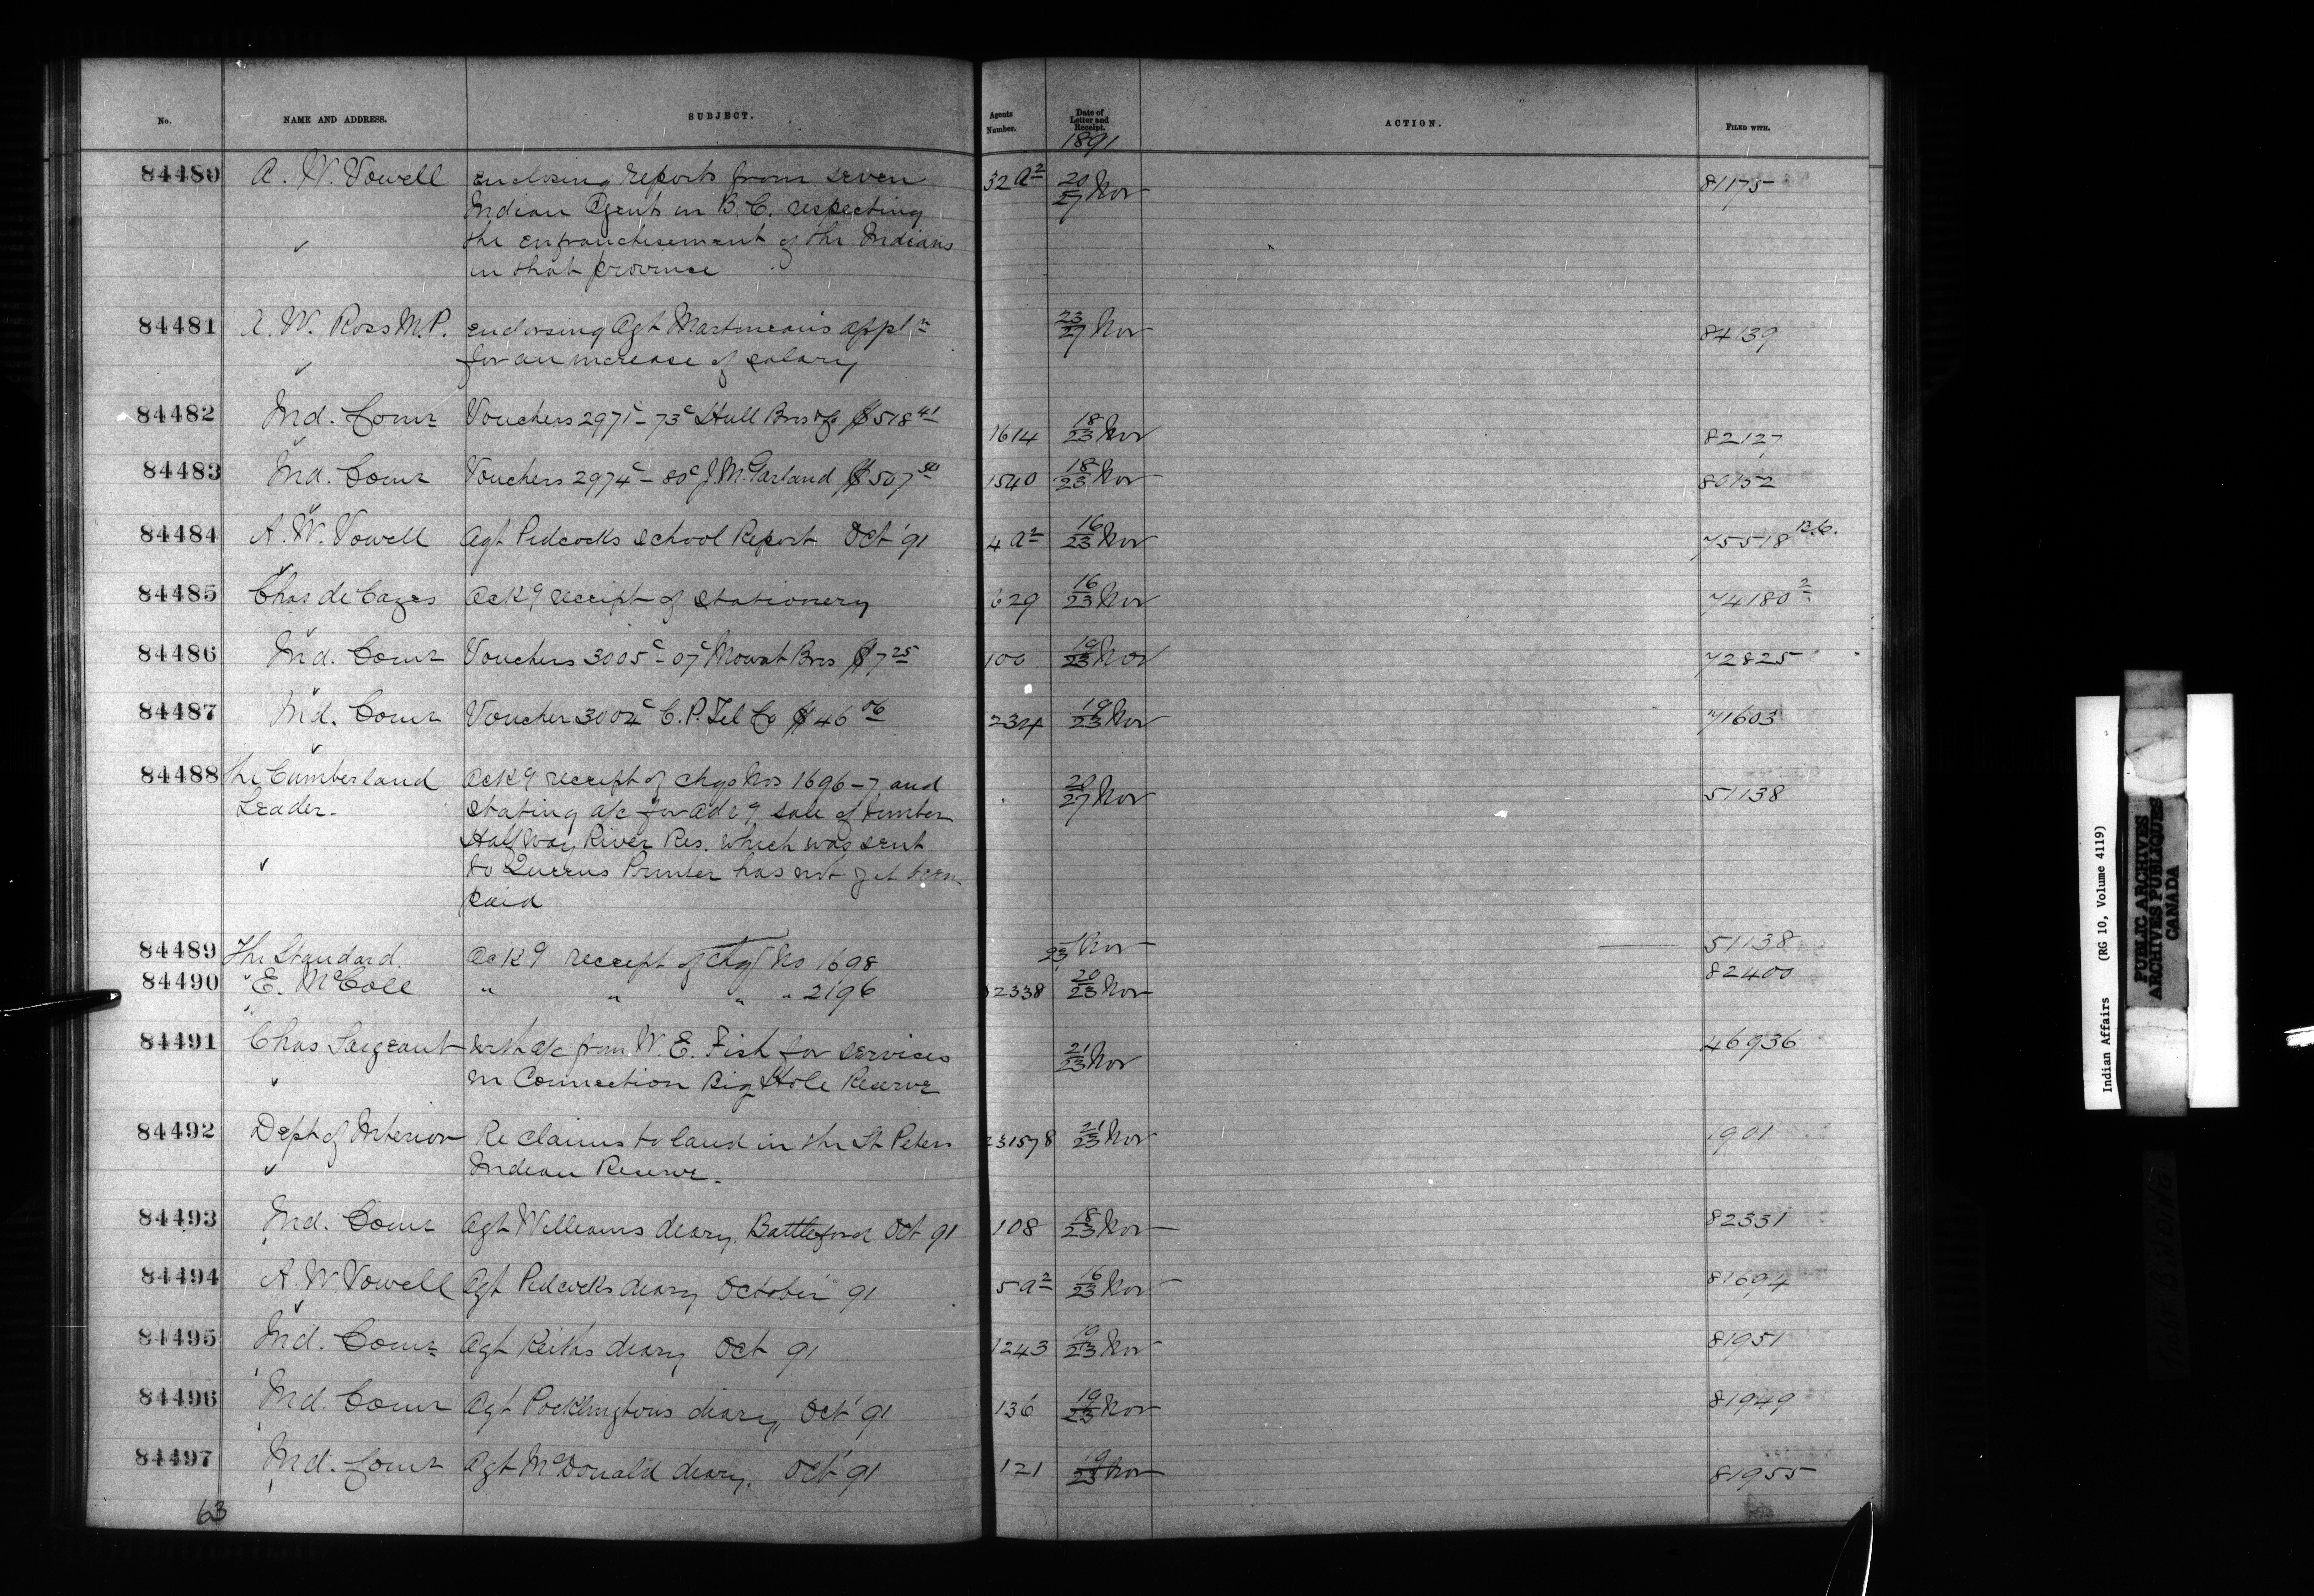 No. NAME AND ADDRESS. SUBJECT. Agents Number. Date of Letter and Receipt. ACTION. FILED WITH.
1891
84480 A. W. Vowell Enclosing reports from seven 32 a2 20/27 Nov 81175
Indian Agents in B.C. respecting
✓ the enfranchisement of the Indians
in that province
84481 A. W. Ross M.P. Endorsing Agt Martineau's appln 23/27 Nov 84139
✓ for an increase of salary
84482 Ind. Comr Vouchers 2971c-73c Hull Bros & Co $518 41 1614 18/23 Nov 82127
84483 Ind. Comr Vouchers 2974c-80c J. McGarland $507 1540 18/23 Nov 80152
84484 A. W. Vowell Agt Pidcocks school Report Oct '91 4 a2 16/23 Nov 75518 B.C.
84485 Chas de Cazes Ackg receipt of stationery 629 16/23 Nov 74180 2
84486 Ind. Comr Vouchers 3005c-07c Mowat Bros $7 25 100 19/23 Nov 72825
84487 Ind. Comr Voucher 3004c C. P. Tel Co $46 06 2324 19/23 Nov 71603
84488 The Cumberland Ackg receipt of chqs Nos 1696-7 and 20/27 Nov 51138
Leader. stating a/c for advg sale of timber
Half Way River Res. which was sent
✓ to Queens Printer has not yet been
paid
84489 The Standard Ackg receipt of chq No 1698 23 Nov 51138
84490 E. McColl " " " " 2196 2338 20/23 Nov 82400
84491 Chas Sargeant with a/c from W. E. Fish for services 21/23 Nov 46936
✓ in Connection Big Hole Reserve
84492 Dept of Interior Re claims to land in the St Peters 231578 21/23 Nov 1901
✓ Indian Reserve.
84493 Ind. Comr Agt Williams diary, Battleford Oct 91 108 18/23 Nov 82331
84494 A. W Vowell Agt Pidcocks diary October 91 5 a2 16/23 Nov 81694
84495 Ind. Comr Agt Keiths diary Oct 91 1243 19/23 Nov 81951
84496 Ind. Comr Agt Pocklingtons diary, Oct '91 136 19/23 Nov 81949
84497 Ind. Comr Agt McDonald diary. Oct '91 121 19/23 Nov 81955
63
Indian Affairs (RG 10, Volume 4119)
PUBLIC ARCHIVES
ARCHIVES PUBLIQUES
CANADA